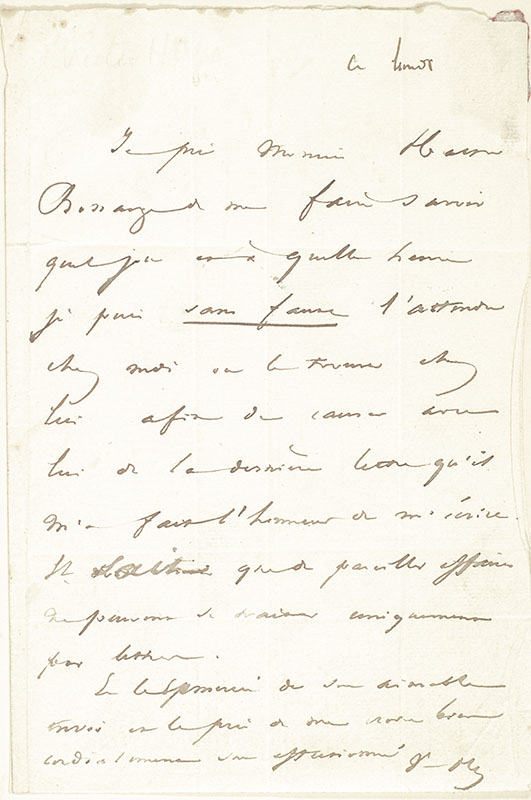 ce lundi
Je prie Monsieur Hector
Bossange de me faire savoir
quel jour et à quelle heure
je puis sans faute l'attendre
chez moi ou le trouver chez
lui afin de causer avec
lui de la dernière lettre qu'il
m'a fait l'honneur de m'écrire.
Il que de pareilles affaires
ne peuvent se traiter uniquement
par lettres.
En le de son aimable
envoi et le prie de me croire bien
cordialement son affectionné